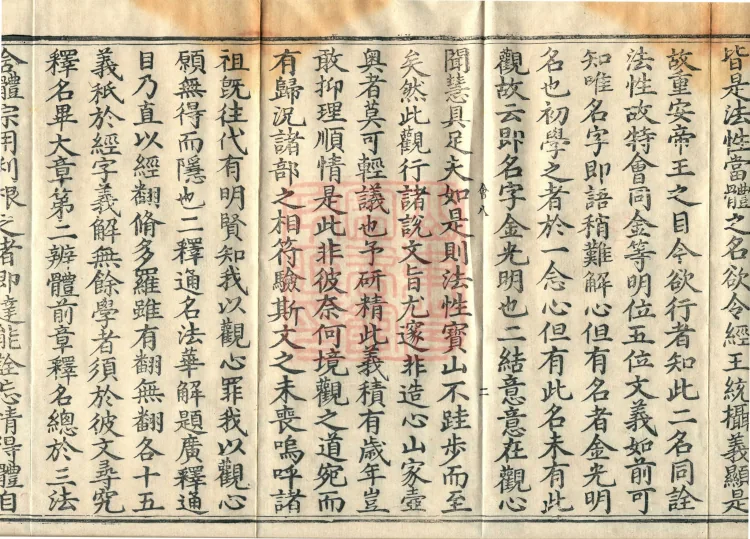 皆是法性當體之名欲令經王統攝義顯是
故重安帝王之目令欲行者知此二名同詮
法性故特會同金等明位五位文義如前可
知唯名字即語稍難解心但有名者金光明
名也初學之者於一念心但有此名未有此
觀故云即名字金光明也二結意意在觀心
會八 二
聞慧具足夫如是則法性寶山不跬步而至
矣然此觀行諸說文旨尤邃非造心山家壼
奥者莫可輕議也予研精此義積有歲年豈
敢抑理順情是此非彼奈何境觀之道宛而
有歸況諸部之相符驗斯文之未喪嗚呼諸
祖旣往代有明賢知我以觀心罪我以觀心
願無得而隱也二釋通名法華解題廣釋通
目乃直以經翻脩多羅雖有翻無翻各十五
義祇於經字義解無餘學者須於彼文尋究
釋名畢大章第二辨體前章釋名總於三法
含體宗用利根之者即達能詮忘情得體自